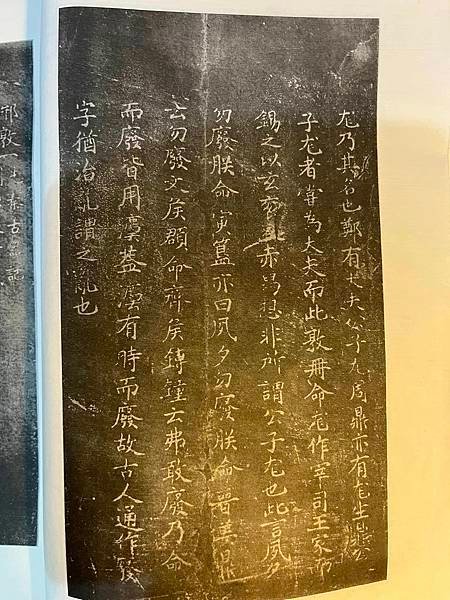 乃其名也鄭有大夫公子周鼎亦有
子者嘗為大夫而此敦冊命作宰司王家而
錫之以玄袞赤舄想非所謂公子也此言夙夕
勿廢朕命寅簋亦曰夙夕勿廢朕命晉姜鼎
云勿廢文侯顯命齊侯鎛鐘云弗敢廢乃命
而廢皆用灋蓋灋有時而廢故古人通作發
字猶治亂謂之亂也
敦